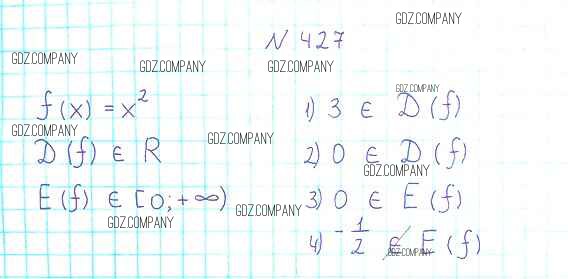 GDZ.COMPANY
N 427
GDZ.COMPANY
GDZ.COMPANY
GDZ.COMPANY
f(x) = x²
GDZ.COMPANY
1) 3 ∈ D(f)
GDZ.COMPANY
D(f) ∈ R
GDZ.COMPANY
2) 0 ∈ D(f)
GDZ.COMPANY
E(f) ∈ [0; +∞)
GDZ.COMPANY
3) 0 ∈ E(f)
GDZ.COMPANY
4) -1/2 ∉ E(f)
GDZ.COMPANY